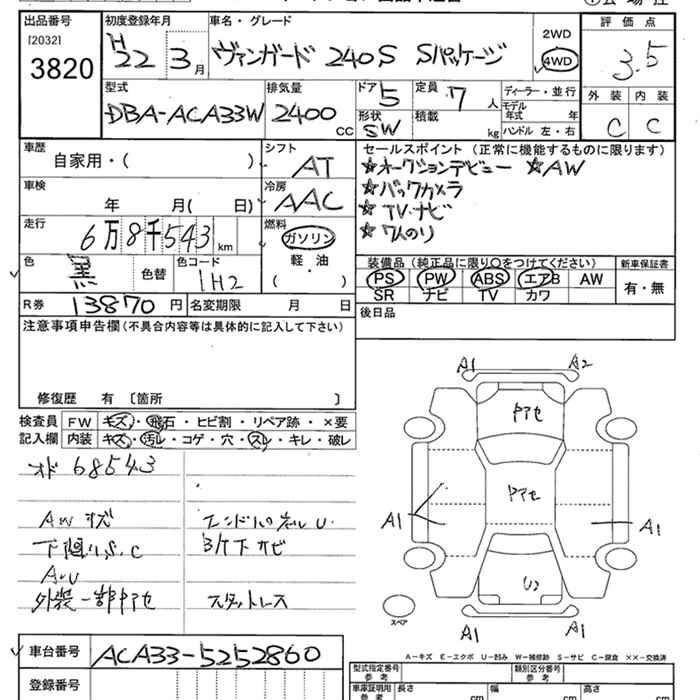 出品番号
[2032]
3820
初度登録年月
H22 3月
車名・グレード
ヴァンガード 240S Sパッケージ
2WD
4WD
評価点
3.5
外装 内装
C C
型式
DBA-ACA33W
排気量
2400 CC
ドア 5
形状 SW
定員 7 人
積載 kg
ディーラー・並行
モデル年式 年
ハンドル 左・右
車歴
自家用・( )
シフト
AT
車検
年 月( 日)
冷房
AAC
走行
6万8千543 km
燃料
ガソリン
軽・油
( )
色
黒 色替
色コード
1H2
R券 13870 円 名変期限 月 日
セールスポイント(正常に機能するものに限ります)
☆オークションデビュー ☆AW
☆バックカメラ
☆TV・ナビ
☆7人のり
装備品(純正品に限り○をつけてください) 新車保証書
PS PW ABS エアB AW 有・無
SR ナビ TV カワ
後日品
注意事項申告欄(不具合内容等は具体的に記入して下さい)
修復歴 有〔箇所 〕
検査員 FW キズ・飛石・ヒビ割・リペア跡・×要
記入欄 内装 キズ・汚レ・コゲ・穴・スレ・キレ・破レ
オド 68543
AWキズ
下廻りS.C
A・U
外装一部トアセ
B/Kドサビ
スタットレス
A1 A2
トアセ
トアセ
A1 A1
U2
スペア
A1 A1
A-キズ E-エクボ U-凹み W-補修跡 S-サビ C-腐食 ××-交換済
車台番号 ACA33-5252860
登録番号
型式指定番号 参考
類別区分番号 参考
車庫証明用 参考 長さ cm 幅 cm 高さ cm